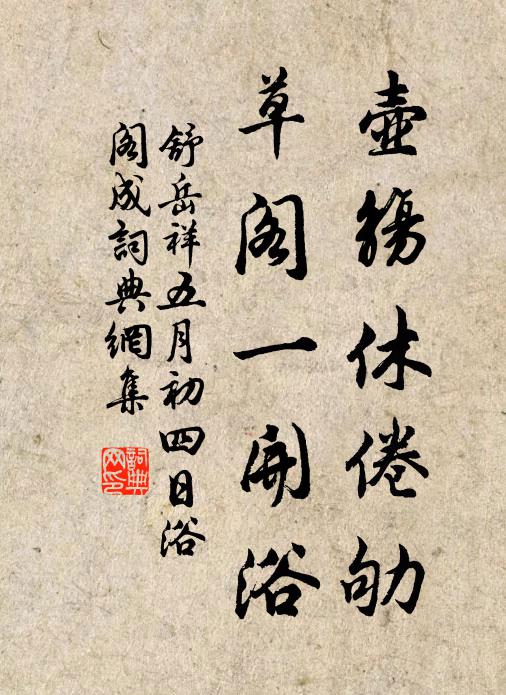 壺觴休倦劬
草阁一開浴
舒岳祥五月初四日浴
阁成詞典網集
詞典
网印